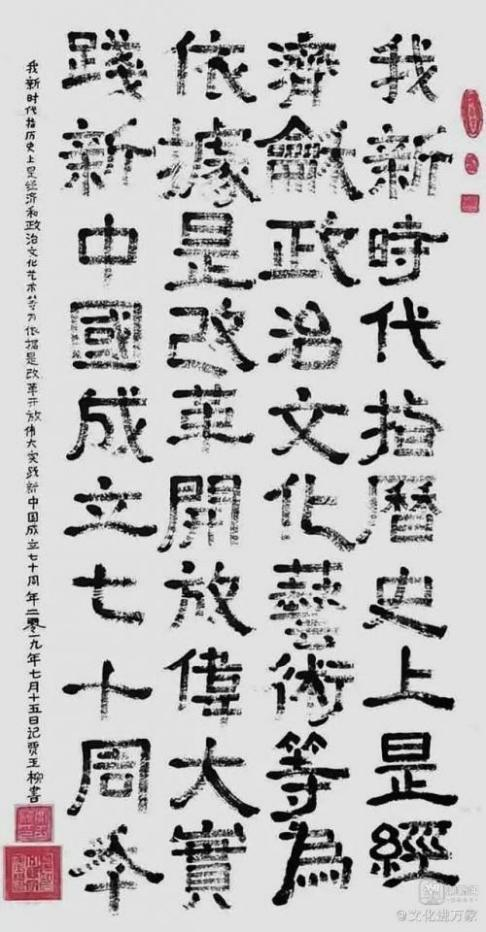 我新時代指曆史上是經
濟龢政治文化藝術等為
依據是改革開放偉大實
踐新中國成立七十周年
我新时代指历史上是经济和政治文化艺术等为依据是改革开放伟大实践新中国成立七十周年二零一九年七月十五日记贾玉柳書
@文化进万家